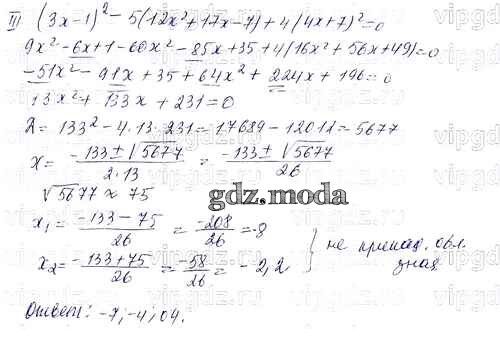 III (3x-1)² - 5(12x²+17x-7)+4(4x+7)²=0
9x²-6x+1-60x²-85x+35+4(16x²+56x+49)=0
-51x²-91x+35+64x²+224x+196=0
13x²+133x+231=0
D=133²-4·13·231=17689-12012=5677
x= (-133±√5677)/(2·13) = (-133±√5677)/26
√5677≈75
gdz.moda
x₁= (-133-75)/26 = -208/26 =-8
x₂= (-133+75)/26 = -58/26 = -2,2
} не принад. обл.
знач
Ответ: -7; -4; 0,4.